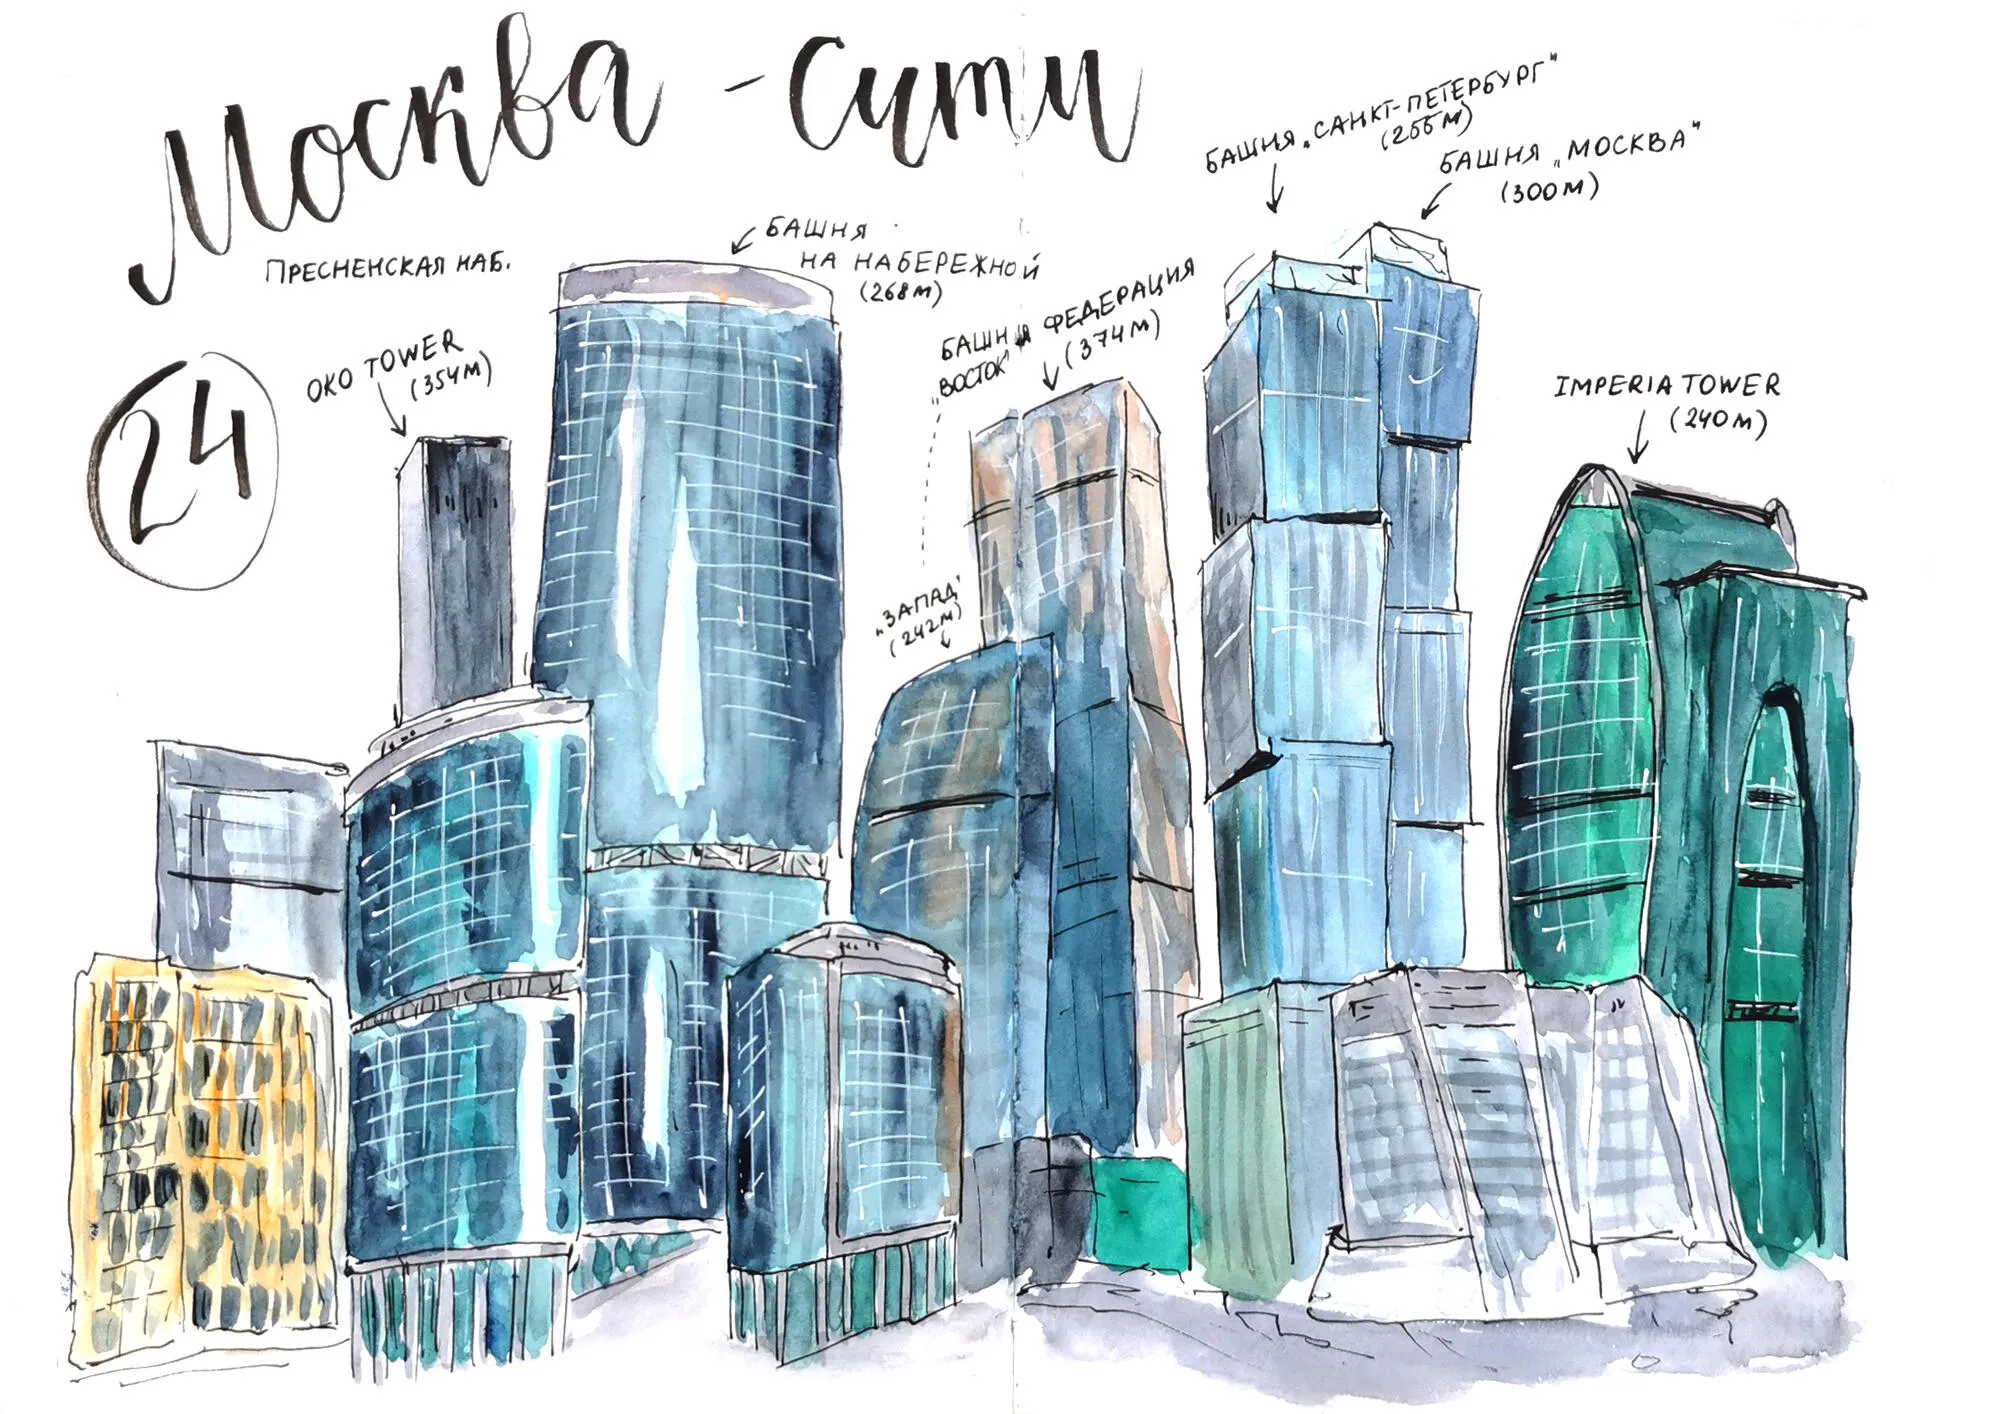 Москва - Сити
ПРЕСНЕНСКАЯ НАБ.
24
ОКО TOWER
(354М)
БАШНЯ
НА НАБЕРЕЖНОЙ
(268М)
БАШНЯ ФЕДЕРАЦИЯ
„ВОСТОК"
(374М)
„ЗАПАД"
(242М)
БАШНЯ „САНКТ-ПЕТЕРБУРГ"
(255М)
БАШНЯ „МОСКВА"
(300М)
IMPERIA TOWER
(240М)